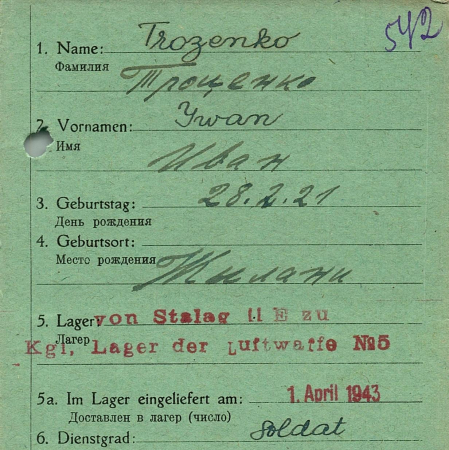 542
1. Name: Trozenko
Фамилия
Троценко
2. Vornamen: Ywan
Имя
Иван
3. Geburtstag: 28.2.21
День рождения
4. Geburtsort:
Место рождения
5. Lager von Stalag II E zu
Лагер
Kgf. Lager der Luftwaffe №5
5a. Im Lager eingeliefert am: 1. April 1943
Доставлен в лагер (число)
6. Dienstgrad: Soldat